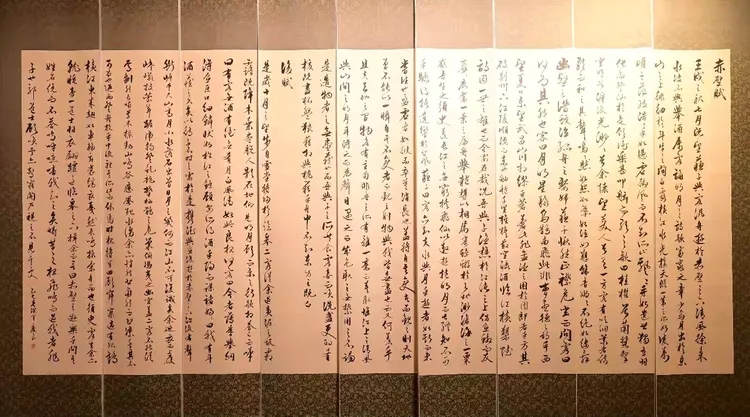 赤壁賦
壬戌之秋七月既望蘇子與客泛舟遊於赤壁之下清風徐來
水波不興舉酒屬客誦明月之詩歌窈窕之章少焉月出於東
山之上徘徊於斗牛之間白露橫江水光接天縱一葦之所如凌萬
頃之茫然浩浩乎如馮虛御風而不知其所止飄飄乎如遺世獨立羽
化而登仙於是飲酒樂甚扣舷而歌之歌曰桂棹兮蘭槳擊
空明兮泝流光渺渺兮余懷望美人兮天一方客有吹洞簫者倚
歌而和之其聲嗚嗚然如怨如慕如泣如訴餘音嫋嫋不絕如縷舞
幽壑之潛蛟泣孤舟之嫠婦蘇子愀然正襟危坐而問客曰
何為其然也客曰月明星稀烏鵲南飛此非曹孟德之詩乎西
望夏口東望武昌山川相繆鬱乎蒼蒼此非孟德之困於周郎者乎方其
破荊州下江陵順流而東也舳艫千里旌旗蔽空釃酒臨江橫槊賦
詩固一世之雄也而今安在哉況吾與子漁樵於江渚之上侶魚蝦而友
麋鹿駕一葉之扁舟舉匏樽以相屬寄蜉蝣於天地渺滄海之一粟
哀吾生之須臾羨長江之無窮挾飛仙以遨遊抱明月而長終知不可
乎驟得託遺響於悲風蘇子曰客亦知夫水與月乎逝者如斯而未
嘗往也盈虛者如彼而卒莫消長也蓋將自其變者而觀之則天地
曾不能以一瞬自其不變者而觀之則物與我皆無盡也而又何羨乎
且夫天地之間物各有主苟非吾之所有雖一毫而莫取惟江上之清風
與山間之明月耳得之而為聲目遇之而成色取之無禁用之不竭
是造物者之無盡藏也而吾與子之所共食客喜而笑洗盞更酌肴
核既盡杯盤狼藉相與枕藉乎舟中不知東方之既白
後賦
是歲十月之望步自雪堂將歸於臨皋二客從余過黃泥之坂霜
露既降木葉盡脫人影在地仰見明月顧而樂之行歌相答已而嘆
曰有客無酒有酒無肴月白風清如此良夜何客曰今者薄暮舉網
得魚巨口細鱗狀如松江之鱸顧安所得酒乎歸而謀諸婦婦曰我有斗
酒藏之久矣以待子不時之需於是攜酒與魚復遊於赤壁之下江流有聲
斷岸千尺山高月小水落石出曾日月之幾何而江山不可復識矣余乃攝衣而上履
巉巖披蒙茸踞虎豹登虬龍攀棲鶻之危巢俯馮夷之幽宮蓋二客不能從
焉劃然長嘯草木震動山鳴谷應風起水湧余亦悄然而悲肅然而恐凜乎其不
可留也反而登舟放乎中流聽其所止而休焉時夜將半四顧寂寥適有孤鶴
橫江東來翅如車輪玄裳縞衣戛然長鳴掠余舟而西也須臾客去余亦
就睡夢一道士羽衣蹁躚過臨皋之下揖余而言曰赤壁之遊樂乎問其
姓名俛而不答嗚呼噫嘻我知之矣疇昔之夜飛鳴而過我者非
子也耶道士顧笑予亦驚寤開戶視之不見其處